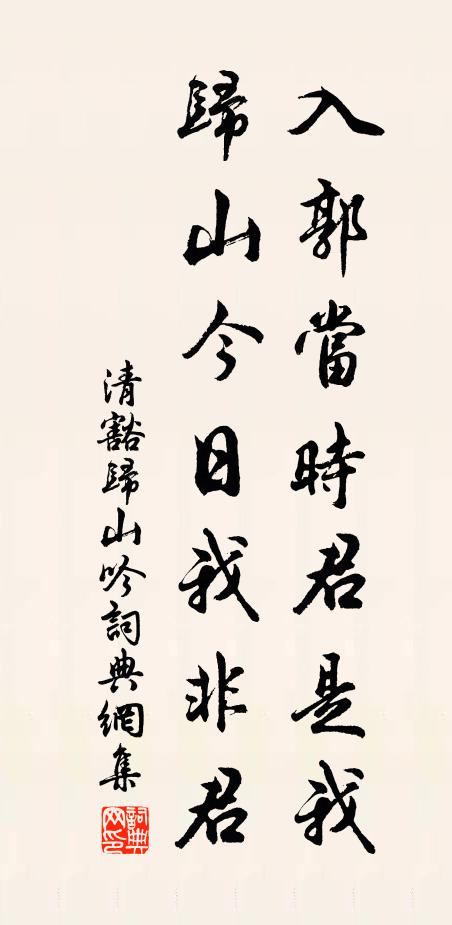 入郭當時君是我
歸山今日我非君
清豁歸山吟詞典網集
詞典網印